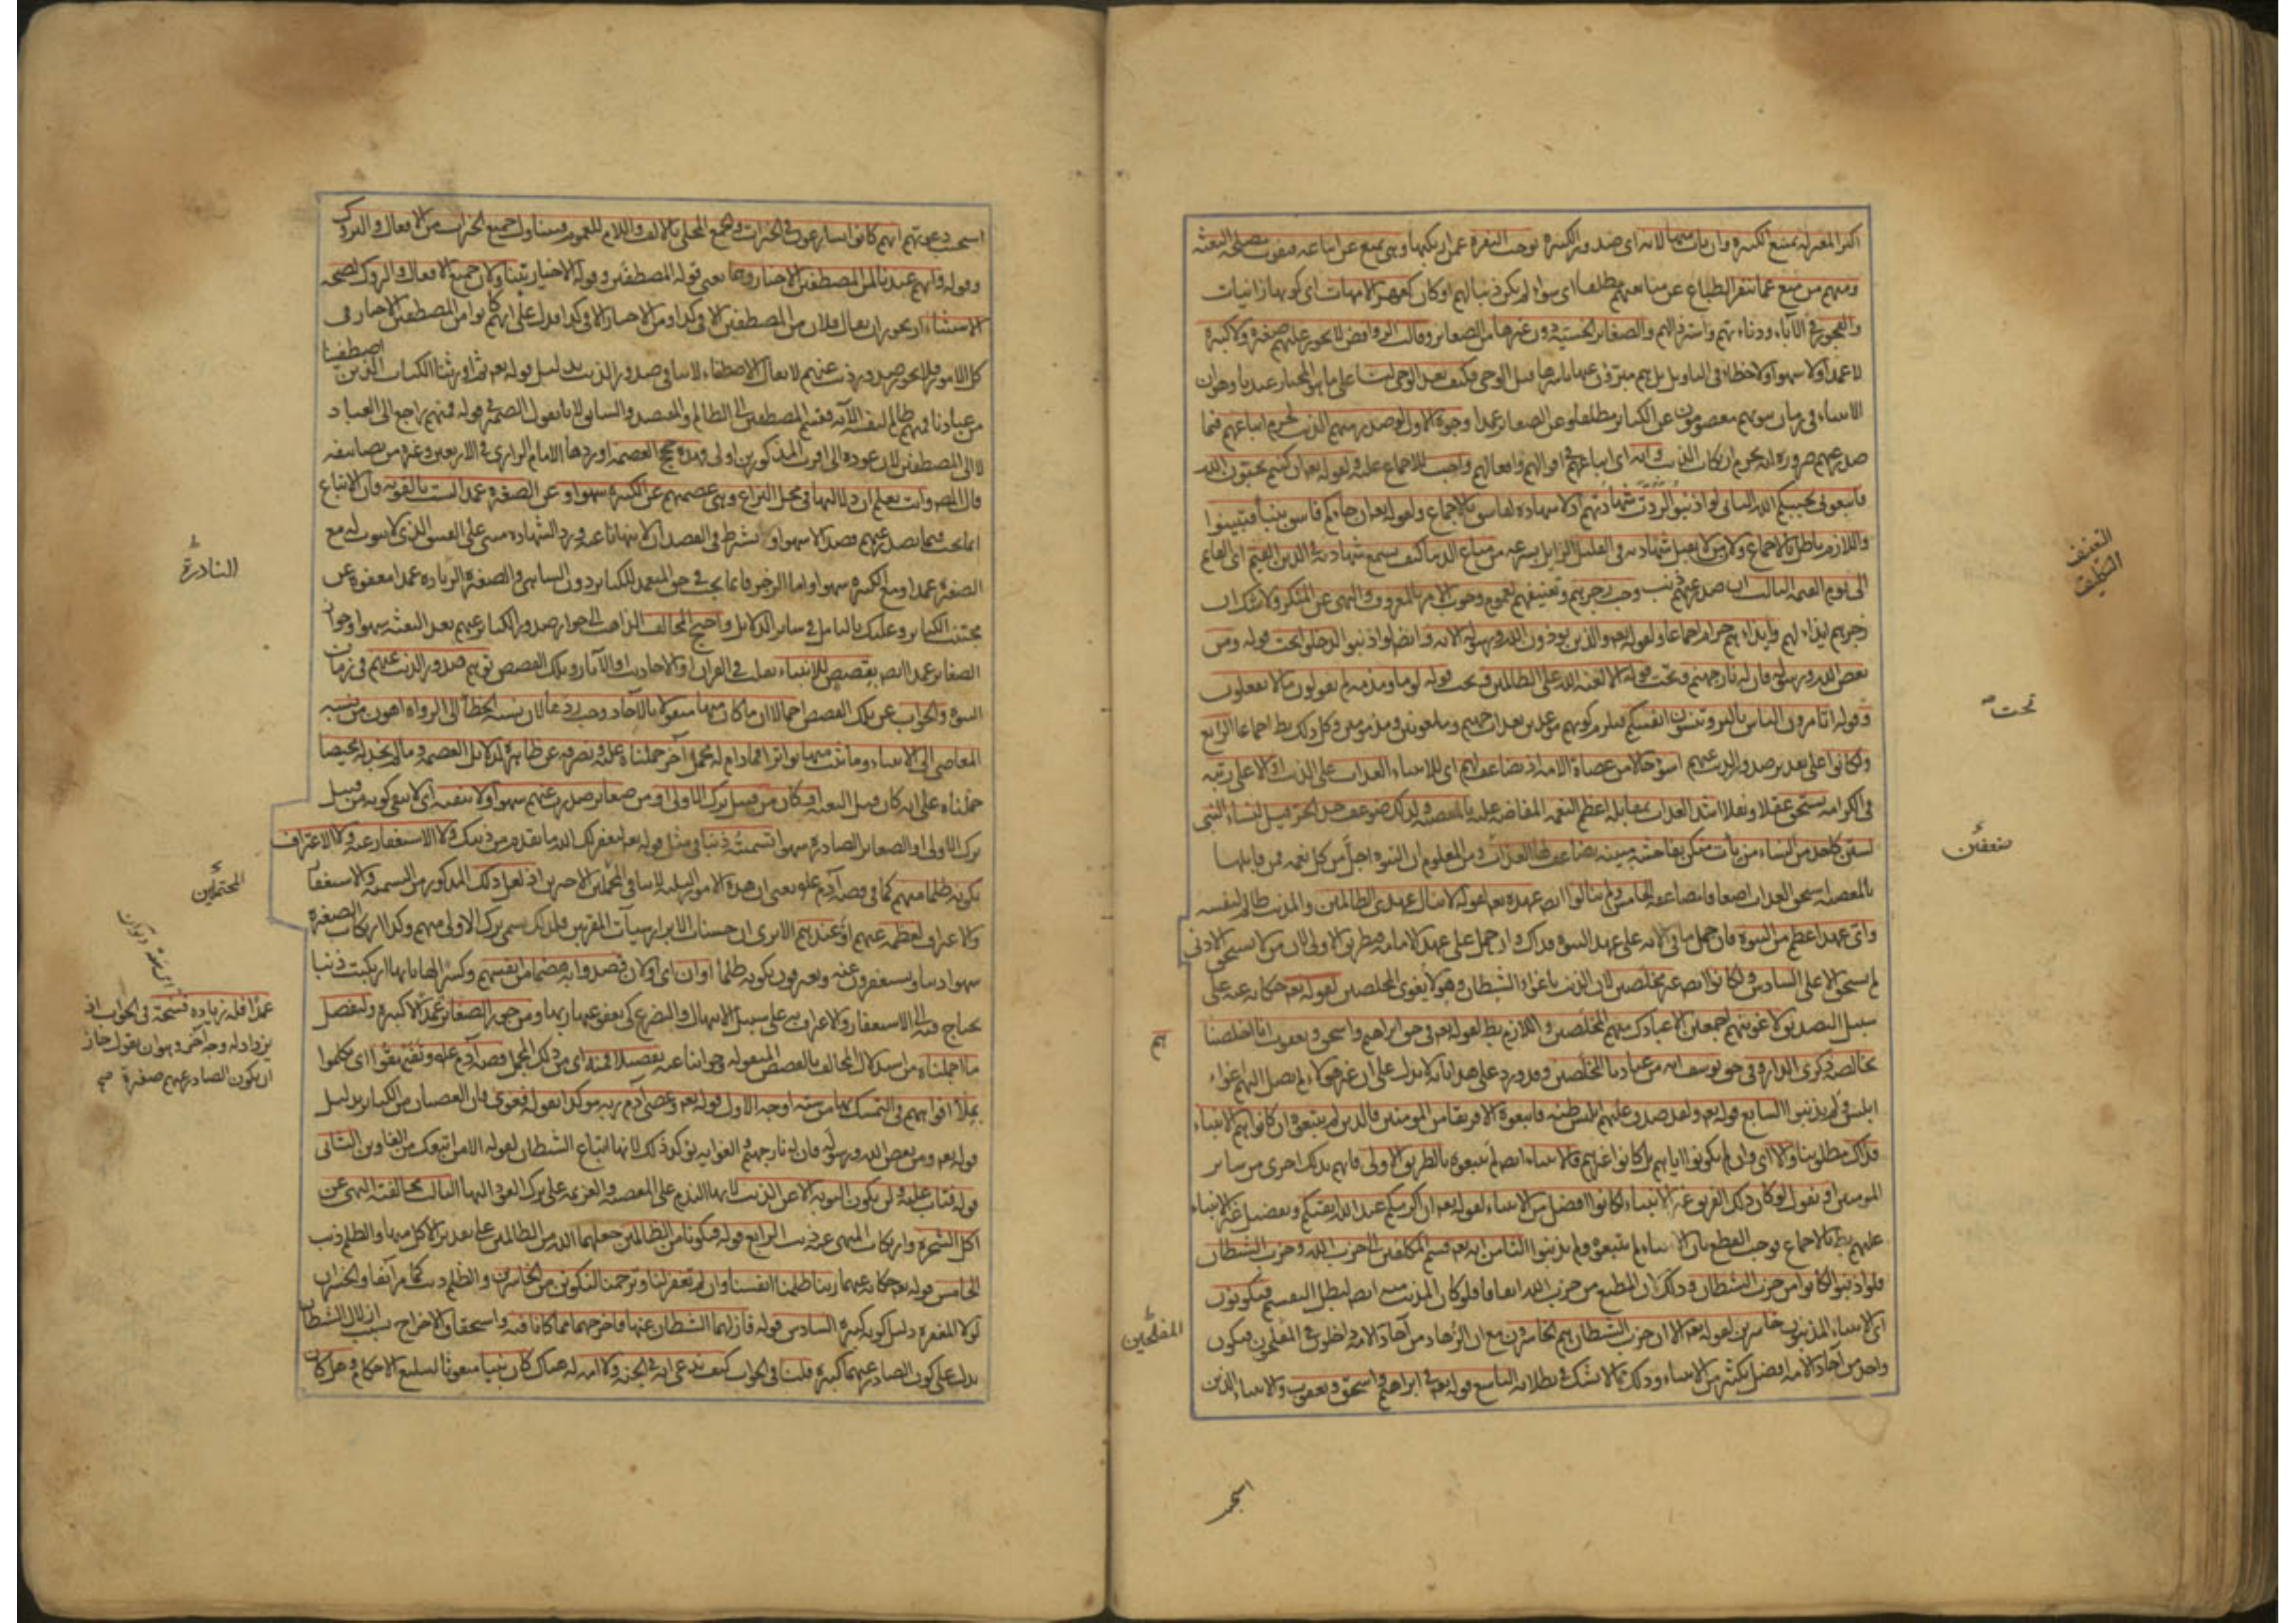 اكثر المعتزلة يمتنع الكبيرة وان تاب منها لانه اى صدور الكبيرة يوجب النفرة عمن ارتكبها وهى تمنع عن اتباعه فيفوت مصلحة البعثة
ومنهم من منع عما ينفر الطباع عن متابعتهم مطلقا اى سواء لم يكن ذنبا لهم او كان كعهر الامهات اى كونها زانيات
والفجور فى الآباء ودناءتهم واسترذالهم والصغاير الخسيسة دون غيرها من الصغاير وقالت الروافض لا يجوز عليهم صغيرة ولا كبيرة
لا عمدا ولا سهوا ولا خطاء فى التاويل بل هم مبرؤن عنها باسرها قبل الوحى فكيف بعد الوحى لنا على ما هو المختار عندنا وهو ان
الانبياء فى زمان نبوتهم معصومون عن الكباير مطلقا وعن الصغاير عمدا وجوه الاول لو صدر منهم الذنب لحرم اتباعهم فيما
صدر عنهم ضرورة انه يحرم ارتكاب الذنب وانه اى اتباعهم فى اقوالهم وافعالهم واجب للاجماع عليه ولقوله تعالى ان كنتم تحبون الله
فاتبعونى يحببكم الله الثانى لو اذنبوا لردت شهادتهم اذ لا شهادة لفاسق بالاجماع ولقوله تعالى ان جاءكم فاسق بنبأ فتبينوا
واللازم باطل بالاجماع ولان من لا يقبل شهادته فى القليل الزايل بسرعة من متاع الدنيا كيف يسمع شهادته فى الدين القيم اى القايم
الى يوم القيمة الثالث ان صدر عنهم ذنب وجب زجرهم وتعنيفهم لعموم وجوب الامر بالمعروف والنهى عن المنكر ولا شك ان
زجرهم ايذاء لهم وايذاءهم حرام اجماعا ولقوله تعم والذين يوذون الله ورسوله الآية وايضا لو اذنبوا لدخلوا تحت قوله ومن
يعص الله ورسوله فان له نار جهنم وتحت قوله الا لعنة الله على الظالمين وتحت قوله لوما ومذمة لم تقولون ما لا تفعلون
وقوله اتامرون الناس بالبر وتنسون انفسكم فيلزم كونهم موعدين بعذاب جهنم وملعونين ومذمومين وكل ذلك بط اجماعا الرابع
ولكانوا على تقدير صدور الذنب عنهم اسوء حالا من عصاة الامة اذ يضاعف لهم اى للانبياء العذاب على الذنب اذ الاعلى رتبة
فى الكرامة يستحق عقلا ونقلا اشد العذاب بمقابلة اعظم النعمة المفاضة عليه بالمعصية ولذلك ضوعف حد الحر وقيل لنساء النبى
لستن كاحد من النساء من يأت منكن بفاحشة مبينة يضاعف لها العذاب ومن المعلوم ان النبوة اجل من كل نعمة فمن قابلها
بالمعصية استحق العذاب اضعافا مضاعفة الخامس ولم ينالوا ايضا عهده تعم لقوله لا ينال عهدى الظالمين والمذنب ظالم لنفسه
واى عهد اعظم من النبوة فان حمل ما فى الآية على عهد النبوة فذاك وان حمل على عهد الامامة فبطريق الاولى لان من لا يستحق الادنى
لم يستحق الاعلى السادس ولكانوا ايضا غير مخلصين لان الذنب باغواء الشيطان وهو لا يغوى المخلصين لقوله تعم حكاية عنه على
سبيل التصديق لاغوينهم اجمعين الا عبادك منهم المخلصين واللازم بط لقوله تعم فى حق ابراهيم واسحق ويعقوب انا اخلصنا
بخالصة ذكرى الدار وفى حق يوسف انه من عبادنا المخلصين
ابليس ولم يذنبوا السابع قوله تعم ولقد صدق عليهم ابليس ظنه فاتبعوه الا فريقا من المومنين فالذين لم يتبعوه ان كانوا هم الانبياء
فذاك مطلوبنا والا اى وان لم يكونوا اياهم بل كانوا غيرهم فالانبياء ايضا لم يتبعوه بالطريق الاولى فانهم بذلك احرى من ساير
المومنين او نقول لو كان ذلك الفريق غير الانبياء لكانوا افضل من الانبياء لقوله تعم ان اكرمكم عند الله اتقيكم وتفضيل غير الانبياء
عليهم بط بالاجماع فوجب القطع بان الانبياء لم يتبعوه ولم يذنبوا الثامن انه تعم قسم المكلفين الى حزب الله وحزب الشيطان
فلو اذنبوا لكانوا من حزب الشيطان وذلك ان المطيع من حزب الله اتفاقا فلو كان المذنب منه ايضا لبطل التقسيم فيكونون
اى الانبياء المذنبون خاسرين لقوله تعم الا ان حزب الشيطان هم الخاسرون مع ان الزهاد من آحاد الامة داخلون فى المفلحون فيكون
واحد من آحاد الامة افضل بكثير من الانبياء وذلك مما لا شك فى بطلانه التاسع قوله تعم فى ابراهيم واسحق ويعقوب والانبياء الذين
التعنيف
تحت
المفلحين
استجب
استجيب دعوتهم انهم كانوا يسارعون فى الخيرات والجمع المحلى بالالف واللام للعموم فيتناول جميع الخيرات من الافعال والتروك
وقوله وانهم عندنا لمن المصطفين الاخيار وهما يعنى قوله المصطفين وقوله الاخيار يتناولان جميع الافعال والتروك لصحة
الاستثناء اذ يجوز ان يقال فلان من المصطفين الا فى كذا ومن الاخيار الا فى كذا فدل على انهم كانوا من المصطفين الاخيار فى
كل الامور فلا يجوز صدور ذنب عنهم لا يقال الاصطفاء لا ينافى صدور الذنب بدليل قوله تعم ثم اورثنا الكتاب الذين اصطفينا
من عبادنا فمنهم ظالم لنفسه الآية فقسم المصطفين الى الظالم والمقتصد والسابق لانا نقول الضمير فى قوله فمنهم راجع الى العباد
لا الى المصطفين لان عوده الى اقرب المذكورين اولى فهذه حجج العصمة اوردها الامام الرازى فى الاربعين وغيره من تصانيفه
قال المصر وانت تعلم ان دلالتها فى محل النزاع وهى عصمتهم عن الكبيرة سهوا وعن الصغيرة عمدا ليست بالقوية فان الاتباع
انما يجب فيما يصدر عنهم قصدا لا سهوا ورد الشهادة مبنى على الفسق الذى لا ثبوت له مع
الصغيرة عمدا ومع الكبيرة سهوا واما الزجر فانما يجب فى حق المتعمد للكباير دون الساهى والصغيرة النادرة عمدا معفوة عن
مجتنب الكباير وعليك بالتامل فى ساير الدلايل واحتج المخالف الذاهب الى جواز صدور الكباير عنهم بعد البعثة سهوا وجواز
الصغاير عمدا ايضا بقصص الانبياء نقلت فى القران او الاحاديث او الآثار وتلك القصص توهم صدور الذنب عنهم فى زمان
النبوة والجواب عن تلك القصص اجمالا ان ما كان منها منقولا بالآحاد وجب ردها لان نسبة الخطأ الى الرواة اهون من نسبة
المعاصى الى الانبياء وما ثبت منها تواترا فمادام له محمل آخر حملناه عليه ونصرفه عن ظاهره لدلايل العصمة وما لم نجد له محيصا
حملناه على انه كان قبل البعثة او كان من قبيل ترك الاولى او من صغاير صدرت عنهم سهوا ولا ينفيه اى لا ينفى كونه من قبيل
ترك الاولى او الصغاير الصادرة سهوا تسميته ذنبا فى مثل قوله تعم ليغفر لك الله ما تقدم من ذنبك ولا الاستغفار عنه ولا الاعتراف
بكونه ظلما منهم كما فى قصة آدم علم يعنى ان هذه الامور الثلثة لا تنافى المحملين الاخيرين اذ لعل ذلك المذكور من التسمية والاستغفار
والاعتراف لعظمه عنهم او عندهم الا يرى ان حسنات الابرار سيآت المقربين فلذلك سمى ترك الاولى منهم وكذا ارتكاب الصغيرة
سهوا ذنبا ويستغفرون عنه ويعترفون بكونه ظلما او ان اى او لان قصدوا به هضما من انفسهم وكسرا لها بانها ارتكبت ذنبا
يحتاج فيه الى الاستغفار والاعتراف به على سبيل الابتهال والتضرع كى يعفو عنها ربها ومن جوز الصغاير عمدا ولنفصل
ما اجملناه من استدلال المخالف بالقصص المنقولة وجوابنا عنه تفصيلا فمنه اى من ذلك المجمل قصة آدم عله
بملأ افواههم فى التمسك بها من ستة اوجه الاول قوله تعم وعصى آدم ربه موكدا بقوله فغوى فان العصيان من الكباير بدليل
قوله تعم ومن يعص الله ورسوله فان له نار جهنم والغواية توكد ذلك لانها اتباع الشيطان لقوله الا من اتبعك من الغاوين الثانى
قوله فتاب عليه ولن يكون التوبة الا عن الذنب لانها الندم على المعصية والعزيمة على ترك العود اليها الثالث مخالفته النهى عن
اكل الشجرة وارتكاب المنهى عنه ذنب الرابع قوله فتكونا من الظالمين جعلهما الله من الظالمين على تقدير الاكل منها والظلم ذنب
الخامس قوله تعم حكاية عنهما ربنا ظلمنا انفسنا وان لم تغفر لنا وترحمنا لنكونن من الخاسرين والظلم ذنب كما مر آنفا والخسران
لولا المغفرة دليل كونه كبيرة السادس قوله فازلهما الشيطان عنها فاخرجهما مما كانا فيه واستحقاق الاخراج بسبب ازلال الشيطان
يدل على كون الصادر عنهما كبيرة قلنا فى الجواب كيف يدعى انه فى الجنة ولا امة له هناك كان نبيا مبعوثا لتبليغ الاحكام
النادرة
المحتملين
عمدا فله زيادة فسحة فى الجواب اذ
يزداد له وجه آخر وهو ان يقول جاز
ان يكون الصادر عنهم صغيرة صح